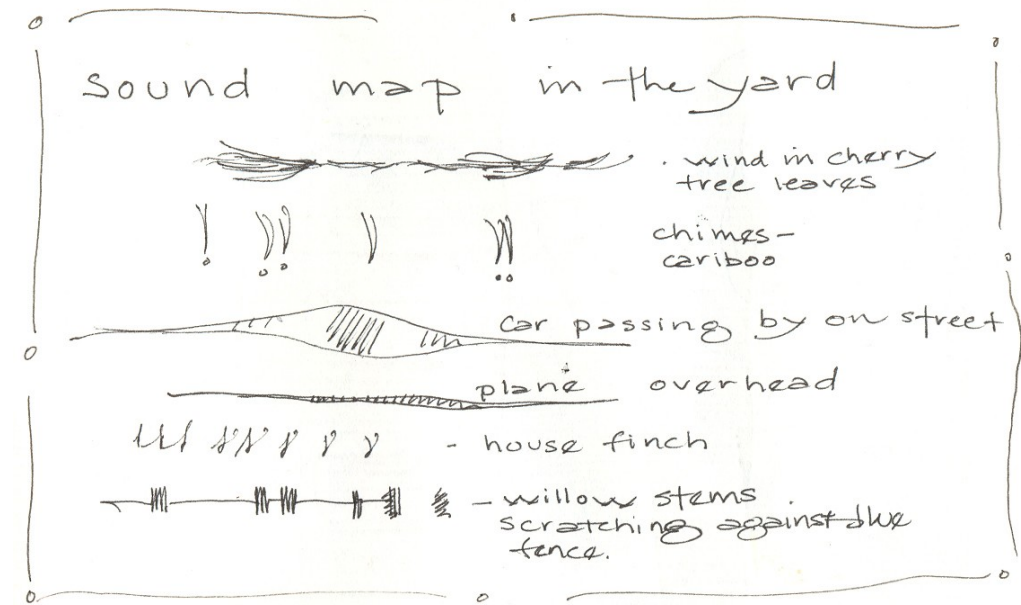 sound map in the yard
. wind in cherry
tree leaves
chimes-
cariboo
car passing by on street
plane overhead
- house finch
- willow stems
scratching against blue
fence.